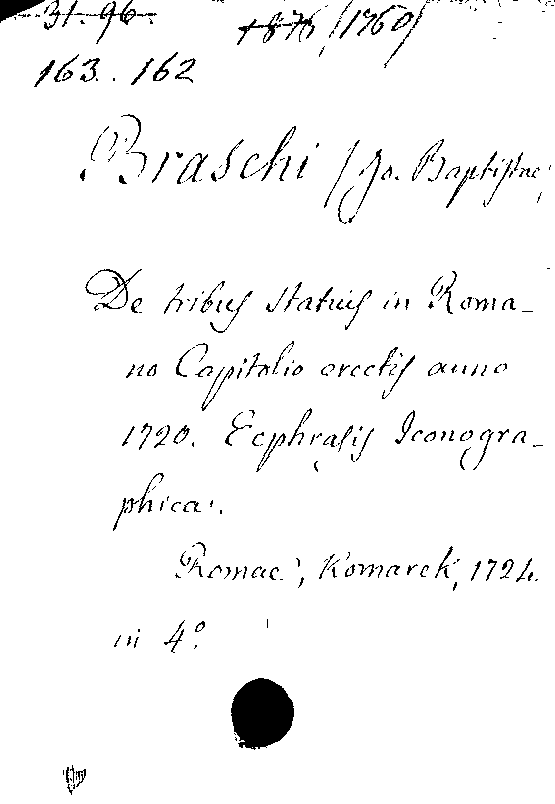 31. 96.
1876 (1760)
163. 162
Braschi (Jo. Baptistae)
De tribus statuis in Roma-
no Capitolio erectis anno
1720. Ecphrasis Iconogra-
phica.
Romae, Komarek, 1724.
in 4°.